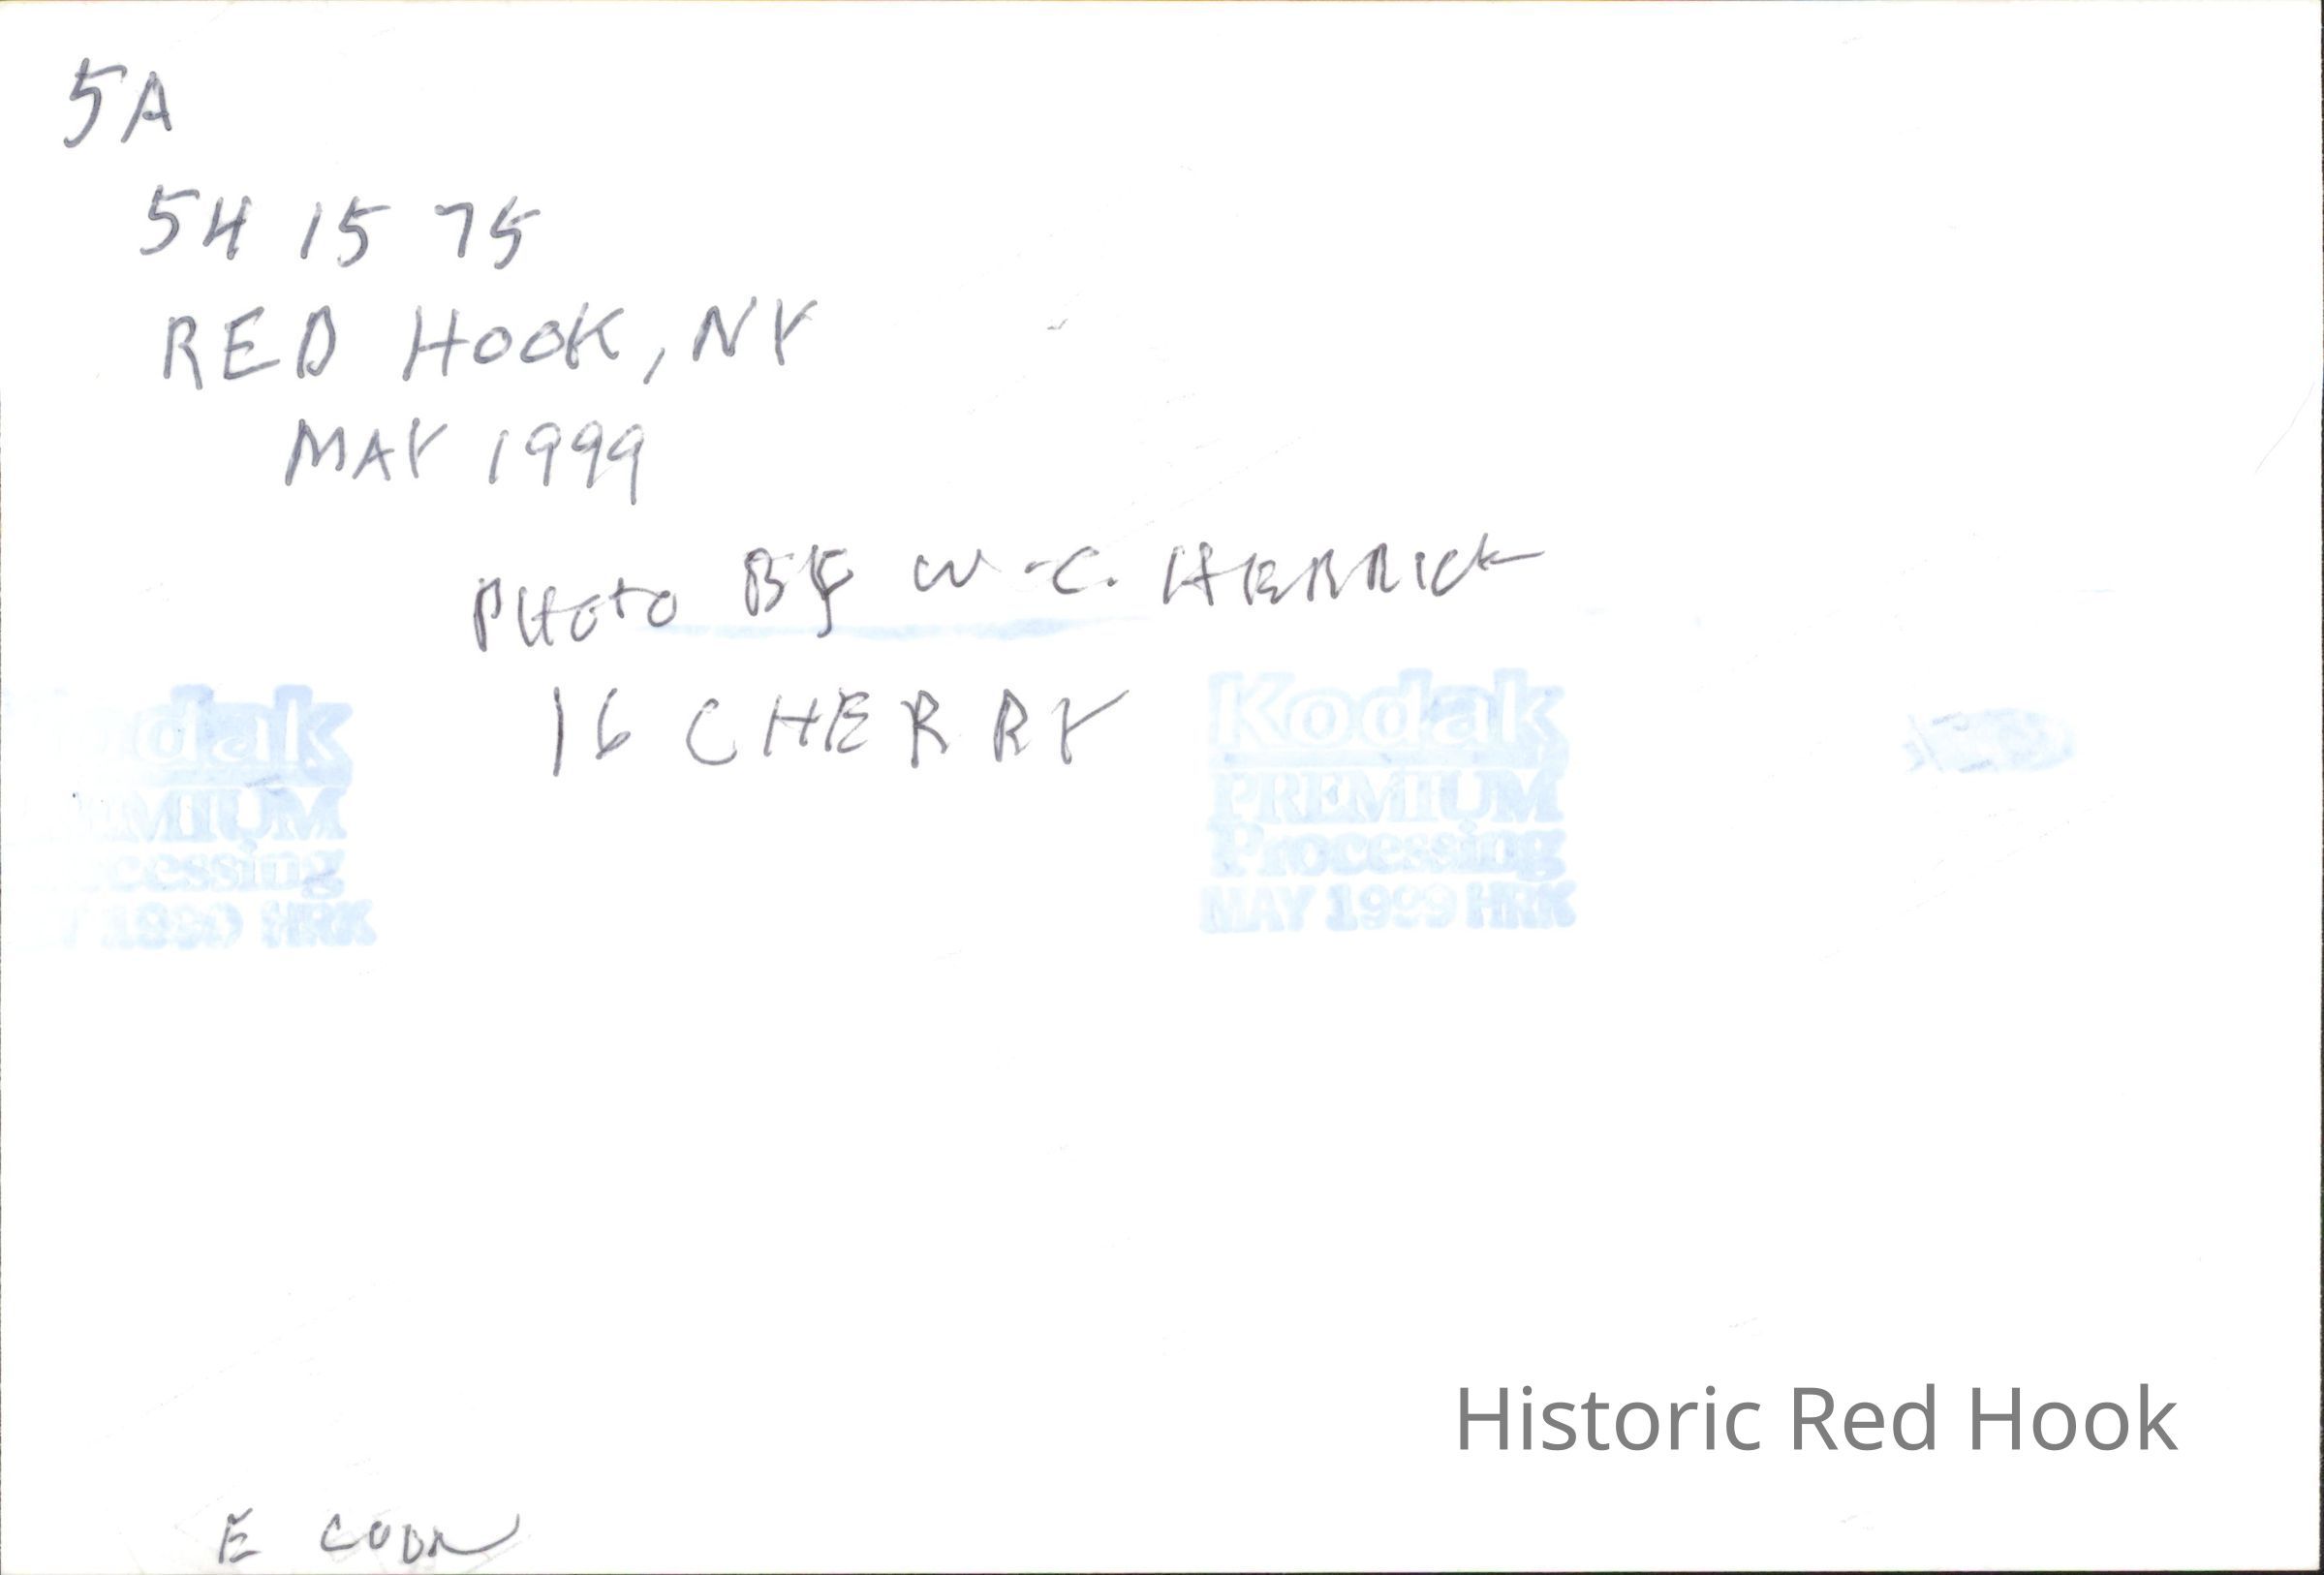 5A
54 15 75
RED HOOK, NY
MAY 1999
PHOTO BY W-C. HERRICK
16 CHERRY
odak
MIUM
cessing
HRK
Kodak
PREMIUM
Processing
MAY 1999 HRK
Historic Red Hook
E